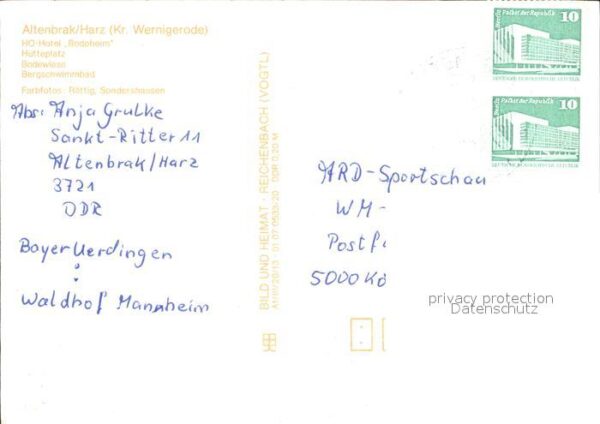 Altenbrak/Harz (Kr. Wernigerode)
HO-Hotel „Bodoheim"
Hütteplatz
Bodewiese
Bergschwimmbad
Farbfotos: Röttig, Sondershausen
Abs: Anja Grulke
Sankt-Ritter 11
Altenbrak/Harz
3721
DDR
Bayer Uerdingen
:
Waldhof Mannheim
BILD UND HEIMAT · REICHENBACH (VOGTL)
A1/III/26/13 01 07 0533/20 DDR 0,20 M
Berlin Palast der Republik 10
DEUTSCHE DEMOKRATISCHE REPUBLIK
Berlin Palast der Republik 10
DEUTSCHE DEMOKRATISCHE REPUBLIK
ARD-Sportschau
WM-
Postf
5000 Kö
privacy protection
Datenschutz